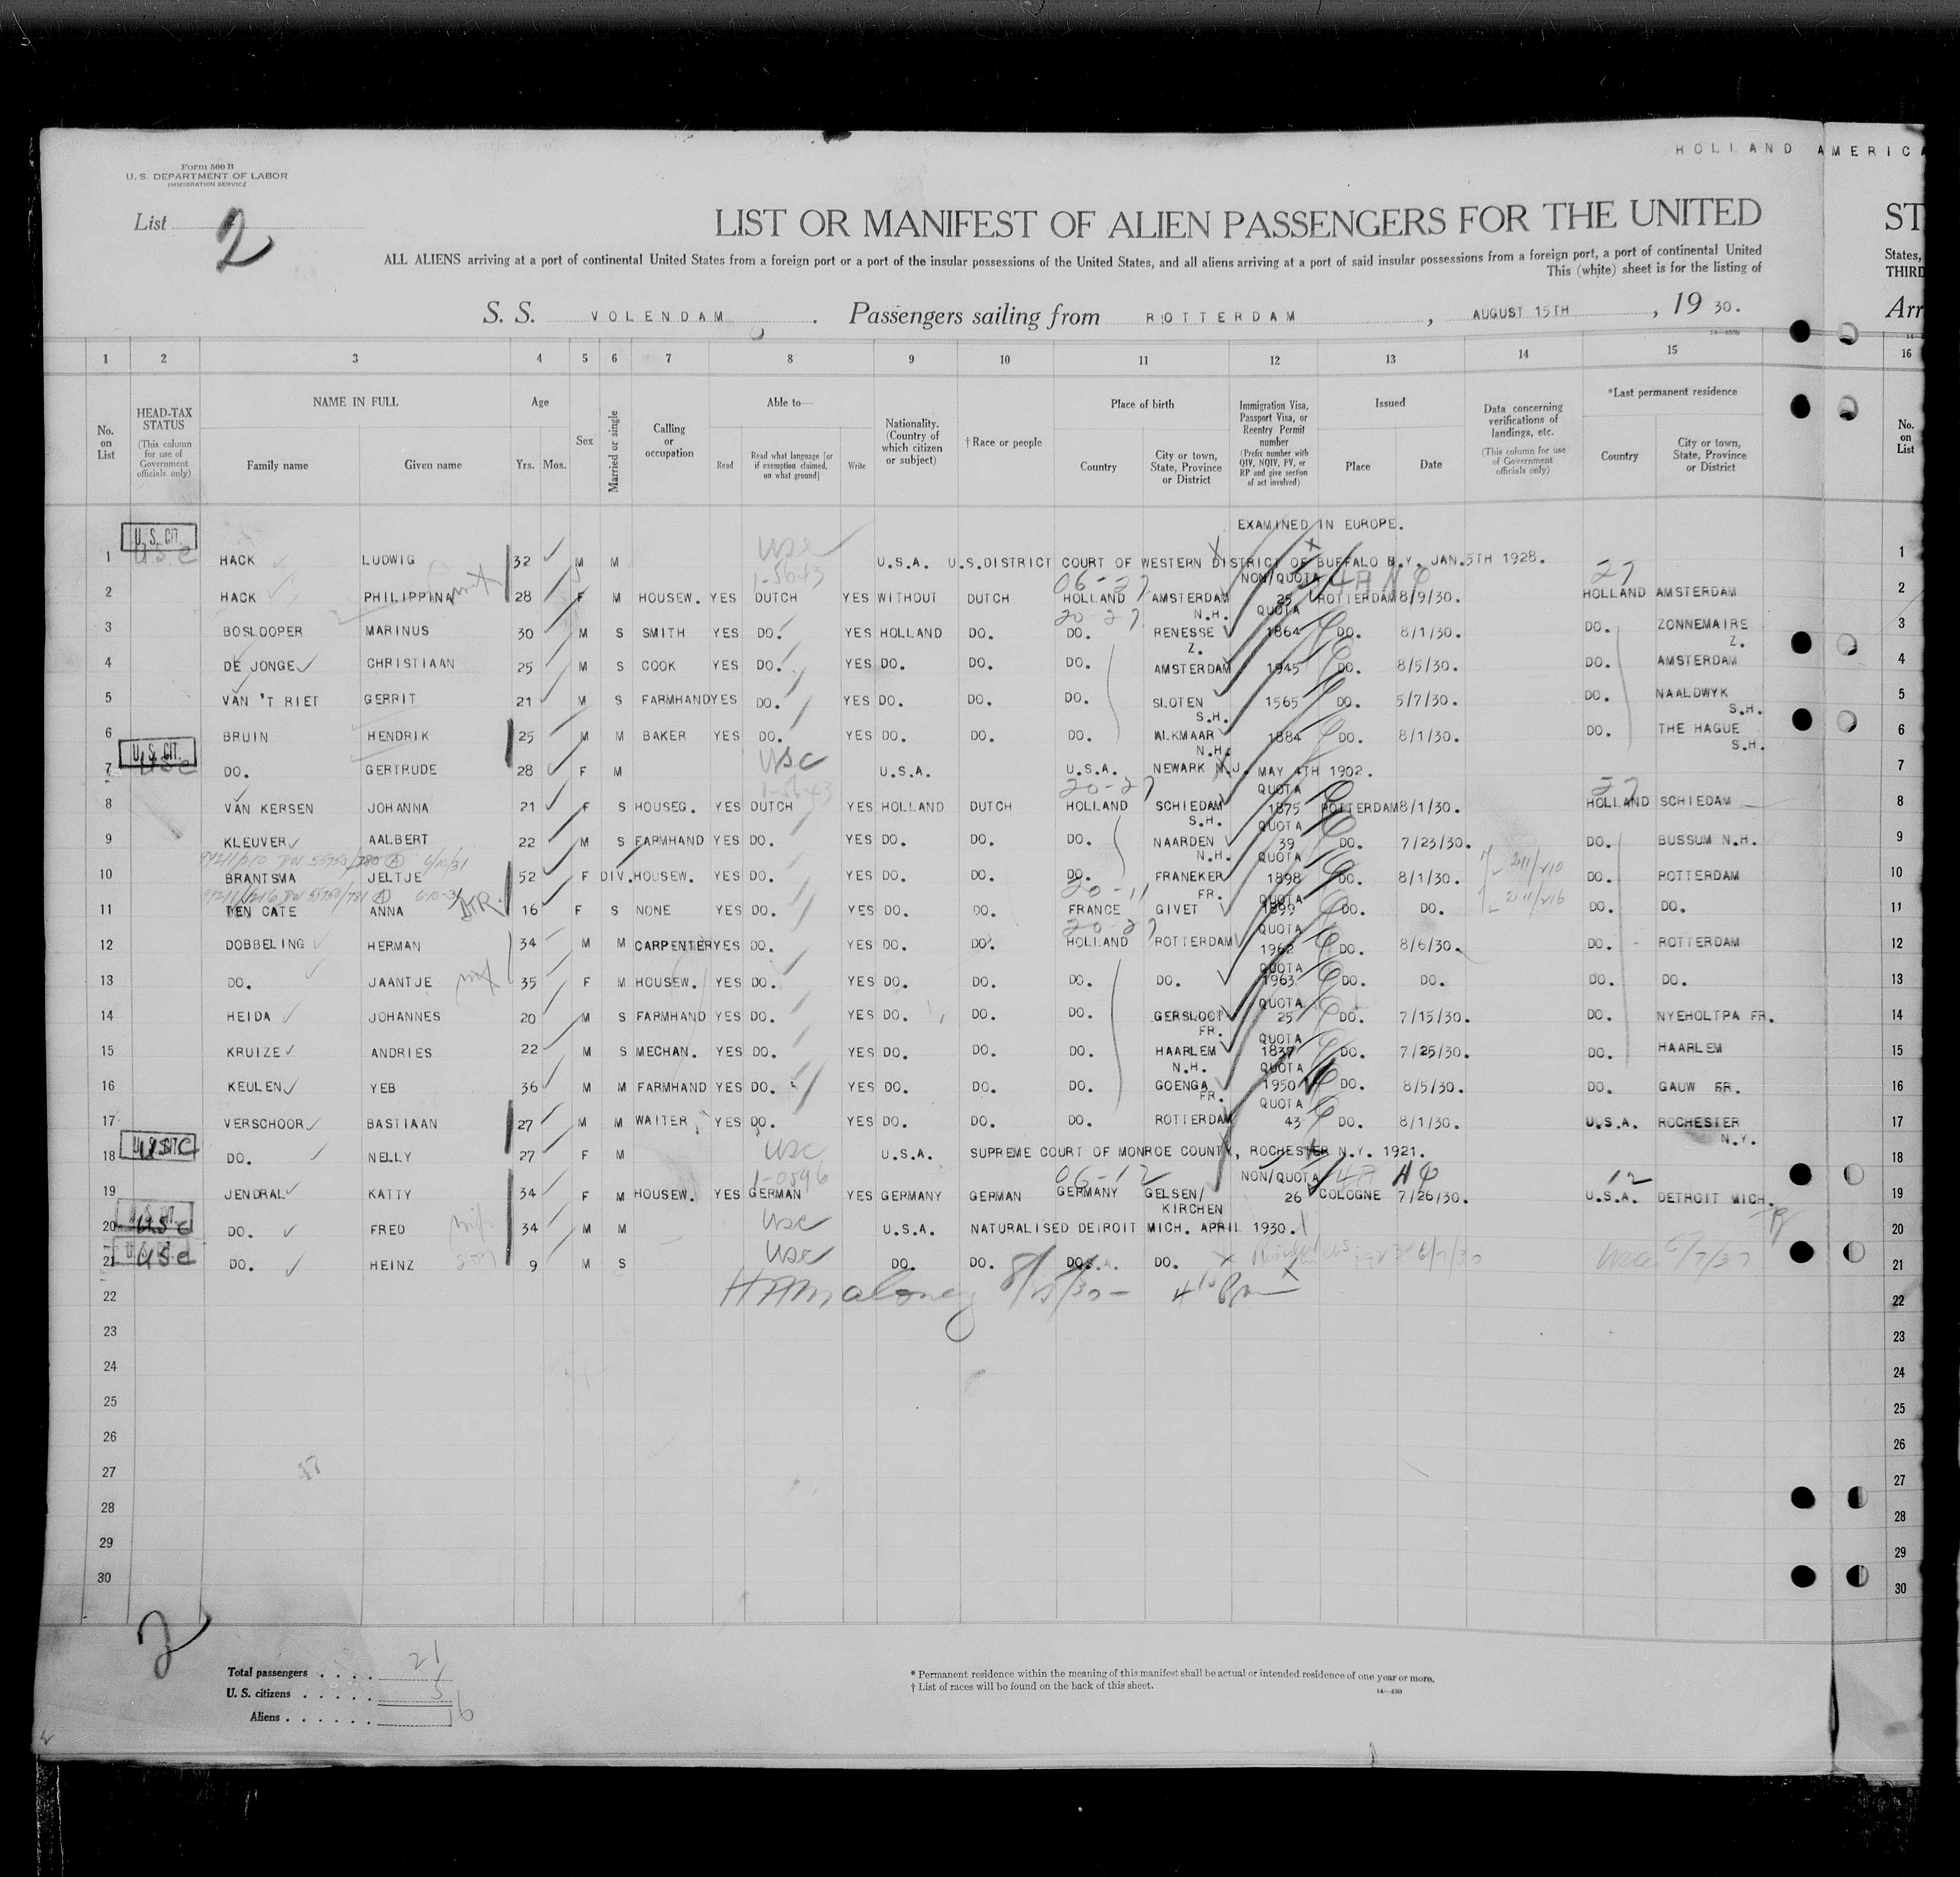 HOLLAND AMERICA
Form 500 B
U. S. DEPARTMENT OF LABOR
IMMIGRATION SERVICE
List 2
LIST OR MANIFEST OF ALIEN PASSENGERS FOR THE UNITED ST
ALL ALIENS arriving at a port of continental United States from a foreign port or a port of the insular possessions of the United States, and all aliens arriving at a port of said insular possessions from a foreign port, a port of continental United States,
This (white) sheet is for the listing of THIRD
S. S. VOLENDAM. Passengers sailing from ROTTERDAM, AUGUST 15TH, 1930. Arr
1 2 3 4 5 6 7 8 9 10 11 12 13 14 15 16
No. on List
HEAD-TAX STATUS (This column for use of Government officials only)
NAME IN FULL
Family name
Given name
Age
Yrs. Mos.
Sex
Married or single
Calling or occupation
Able to—
Read
Read what language [or if exemption claimed, on what ground]
Write
Nationality. (Country of which citizen or subject)
† Race or people
Place of birth
Country
City or town, State, Province or District
Immigration Visa, Passport Visa, or Reentry Permit number (Prefix number with QIV, NQIV, PV, or RP and give section of act involved)
Issued
Place
Date
Data concerning verifications of landings, etc. (This column for use of Government officials only)
*Last permanent residence
Country
City or town, State, Province or District
No. on List
EXAMINED IN EUROPE.
U. S. CIT.
1 USC HACK LUDWIG 32 M M USC U.S.A. U.S.DISTRICT COURT OF WESTERN DISTRICT OF BUFFALO N.Y. JAN.5TH 1928. 1
1-5643 06-27 NON/QUOTA 27
2 HACK PHILIPPINA 28 F M HOUSEW. YES DUTCH YES WITHOUT DUTCH HOLLAND AMSTERDAM N.H. 25 ROTTERDAM 8/9/30. HOLLAND AMSTERDAM 2
20-27 QUOTA
3 BOSLOOPER MARINUS 30 M S SMITH YES DO. YES HOLLAND DO. DO. RENESSE Z. 1864 DO. 8/1/30. DO. ZONNEMAIRE Z. 3
4 DE JONGE CHRISTIAAN 25 M S COOK YES DO. YES DO. DO. DO. AMSTERDAM 1945 DO. 8/5/30. DO. AMSTERDAM 4
5 VAN 'T RIET GERRIT 21 M S FARMHAND YES DO. YES DO. DO. DO. SLOTEN S.H. 1565 DO. 5/7/30. DO. NAALDWYK S.H. 5
6 BRUIN HENDRIK 25 M M BAKER YES DO. YES DO. DO. DO. ALKMAAR N.H. 1884 DO. 8/1/30. DO. THE HAGUE S.H. 6
U. S. CIT.
7 USC DO. GERTRUDE 28 F M USC U.S.A. U.S.A. NEWARK N.J. MAY 4TH 1902. 7
1-5643 20-27 QUOTA 27
8 VAN KERSEN JOHANNA 21 F S HOUSEG. YES DUTCH YES HOLLAND DUTCH HOLLAND SCHIEDAM S.H. 1875 ROTTERDAM 8/1/30. HOLLAND SCHIEDAM 8
QUOTA
9 KLEUVER AALBERT 22 M S FARMHAND YES DO. YES DO. DO. DO. NAARDEN N.H. 39 DO. 7/23/30. DO. BUSSUM N.H. 9
QUOTA
10 BRANTSMA JELTJE 52 F DIV. HOUSEW. YES DO. YES DO. DO. DO. FRANEKER FR. 1898 DO. 8/1/30. DO. ROTTERDAM 10
20-11 QUOTA
11 TEN CATE ANNA 16 F S NONE YES DO. YES DO. DO. FRANCE GIVET 1899 DO. DO. DO. DO. 11
20-27 QUOTA
12 DOBBELING HERMAN 34 M M CARPENTER YES DO. YES DO. DO. HOLLAND ROTTERDAM 1962 DO. 8/6/30. DO. ROTTERDAM 12
QUOTA
13 DO. JAANTJE 35 F M HOUSEW. YES DO. YES DO. DO. DO. DO. 1963 DO. DO. DO. DO. 13
QUOTA
14 HEIDA JOHANNES 20 M S FARMHAND YES DO. YES DO. DO. DO. GERSLOOT FR. 25 DO. 7/15/30. DO. NYEHOLTPA FR. 14
QUOTA
15 KRUIZE ANDRIES 22 M S MECHAN. YES DO. YES DO. DO. DO. HAARLEM N.H. 1837 DO. 7/25/30. DO. HAARLEM 15
QUOTA
16 KEULEN YEB 36 M M FARMHAND YES DO. YES DO. DO. DO. GOENGA FR. 1950 DO. 8/5/30. DO. GAUW FR. 16
QUOTA
17 VERSCHOOR BASTIAAN 27 M M WAITER YES DO. YES DO. DO. DO. ROTTERDAM 43 DO. 8/1/30. U.S.A. ROCHESTER N.Y. 17
18 USC DO. NELLY 27 F M USC U.S.A. SUPREME COURT OF MONROE COUNTY, ROCHESTER N.Y. 1921. 18
1-0596 06-12 NON/QUOTA 12
19 JENDRAL KATTY 34 F M HOUSEW. YES GERMAN YES GERMANY GERMAN GERMANY GELSEN/KIRCHEN 26 COLOGNE 7/26/30. U.S.A. DETROIT MICH. 19
20 USC DO. FRED 34 M M USC U.S.A. NATURALISED DETROIT MICH. APRIL 1930. 20
21 USC DO. HEINZ son 9 M S USC DO. DO. DO. DO. 21
22 HAMaloney 22
23 23
24 24
25 25
26 26
27 27
28 28
29 29
30 30
2
Total passengers . . . . 21
U. S. citizens . . . . . 5
Aliens . . . . . . 16
* Permanent residence within the meaning of this manifest shall be actual or intended residence of one year or more.
† List of races will be found on the back of this sheet.
14—430